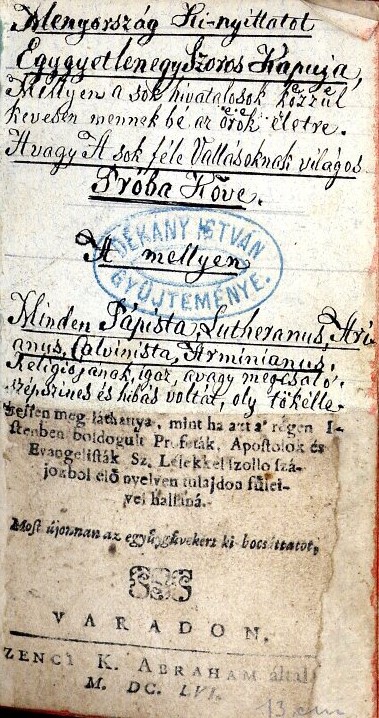 Menyország Ki-nyittatot
Egygyetlenegy Szoros Kapuja,
Mellyen a sok hivatalosok közzül
kevesen mennek bé az örök életre.
Avagy A sok féle Vallásoknak világos
Próba Köve.
DÉKÁNY ISTVÁN
GYŰJTEMÉNYE.
A mellyen
Minden Pápista, Lutheranus, Ari-
anus, Calvinista, Arminianus,
Religiojának, igaz, avagy megcsaló,
szépszines és hibás voltat, oly tökélle-
sessen meg-láthattya, mint ha azt a' régen I-
stenben boldogult Profeták, Apostolok és
Evangelisták Sz. Lélekkel szollo szá-
jokbol elő nyelven tulajdon sülei-
vel hallaná.
Most újonnan az együgyüvekért ki bocsáttatot,
VARADON,
ZENCI K. ABRAHAM által
M. DC. LVI.
13 cm